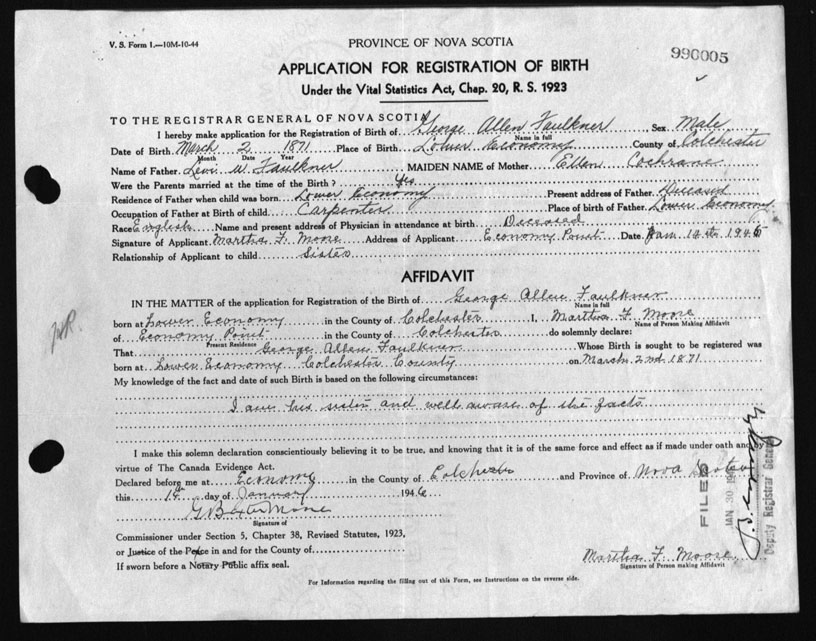 V. S. Form 1.—10M-10-44
PROVINCE OF NOVA SCOTIA
990005
APPLICATION FOR REGISTRATION OF BIRTH
Under the Vital Statistics Act, Chap. 20, R. S. 1923
TO THE REGISTRAR GENERAL OF NOVA SCOTIA
I hereby make application for the Registration of Birth of George Allen Faulkner, Sex Male
Name in full
Date of Birth March 2 1871 Place of Birth Lower Economy County of Colchester
Month Date Year
Name of Father Levi W. Faulkner MAIDEN NAME of Mother Ellen Cochrane
Were the Parents married at the time of the Birth? Yes
Residence of Father when child was born Lower Economy Present address of Father Deceased
Occupation of Father at Birth of child Carpenter Place of birth of Father Lower Economy
Race English Name and present address of Physician in attendance at birth Deceased
Signature of Applicant Martha F. Moore Address of Applicant Economy Point Date Jan 14th 1946
Relationship of Applicant to child Sister
AFFIDAVIT
IN THE MATTER of the application for Registration of the Birth of George Allen Faulkner
Name in full
born at Lower Economy in the County of Colchester I, Martha F Moore
Name of Person Making Affidavit
of Economy Point in the County of Colchester do solemnly declare:
Present Residence
That George Allen Faulkner Whose Birth is sought to be registered was
born at Lower Economy Colchester County on March 2nd 1871
My knowledge of the fact and date of such Birth is based on the following circumstances:
I am his sister and well aware of the facts
I make this solemn declaration conscientiously believing it to be true, and knowing that it is of the same force and effect as if made under oath and by
virtue of The Canada Evidence Act.
Declared before me at Economy in the County of Colchester and Province of Nova Scotia
this 14th day of January 1946
G Baxter Moore
Signature of
Commissioner under Section 5, Chapter 38, Revised Statutes, 1923,
or Justice of the Peace in and for the County of
If sworn before a Notary Public affix seal.
Martha F. Moore
Signature of Person making Affidavit
For Information regarding the filling out of this Form, see Instructions on the reverse side.
FILED
JAN 30
Deputy Registrar General